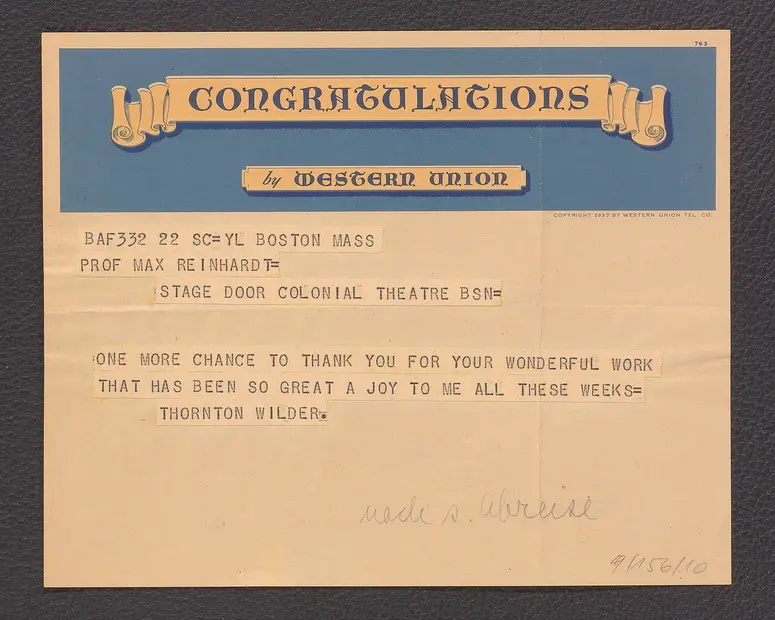 763
CONGRATULATIONS
by WESTERN UNION
COPYRIGHT 1937 BY WESTERN UNION TEL. CO.
BAF332 22 SC=YL BOSTON MASS
PROF MAX REINHARDT=
STAGE DOOR COLONIAL THEATRE BSN=
:ONE MORE CHANCE TO THANK YOU FOR YOUR WONDERFUL WORK
THAT HAS BEEN SO GREAT A JOY TO ME ALL THESE WEEKS=
THORNTON WILDER.
nach s. Abreise
9/156/10